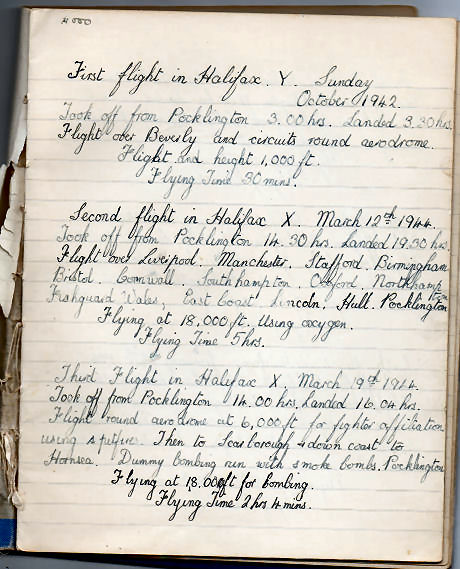 First flight in Halifax. Y. Sunday
October 1942.
Took off from Pocklington 3.00hrs. Landed 3.30hrs.
Flight over Beverly and circuits round aerodrome.
Flight and height 1,000 ft.
Flying Time 30 mins.
Second flight in Halifax X. March 12th 1944.
Took off from Pocklington 14.30 hrs. Landed 19.30 hrs.
Flight over Liverpool. Manchester. Stafford. Birmingham
Bristol. Cornwall. Southampton. Oxford. Northampton
Fishguard Wales, East Coast Lincoln. Hull. Pocklington
Flying at 18,000 ft. Using oxygen.
Flying Time 5 hrs.
Third Flight in Halifax X. March 19th 1944.
Took off from Pocklington 14.00 hrs. Landed 16.04 hrs.
Flight round aerodrome at 6,000ft for fighter affiliation
using spitfire. Then to Scarborough & down coast to
Hornsea. Dummy bombing run with smoke bombs. Pocklington
Flying at 18.000ft for bombing.
Flying Time 2 hrs 4 mins.